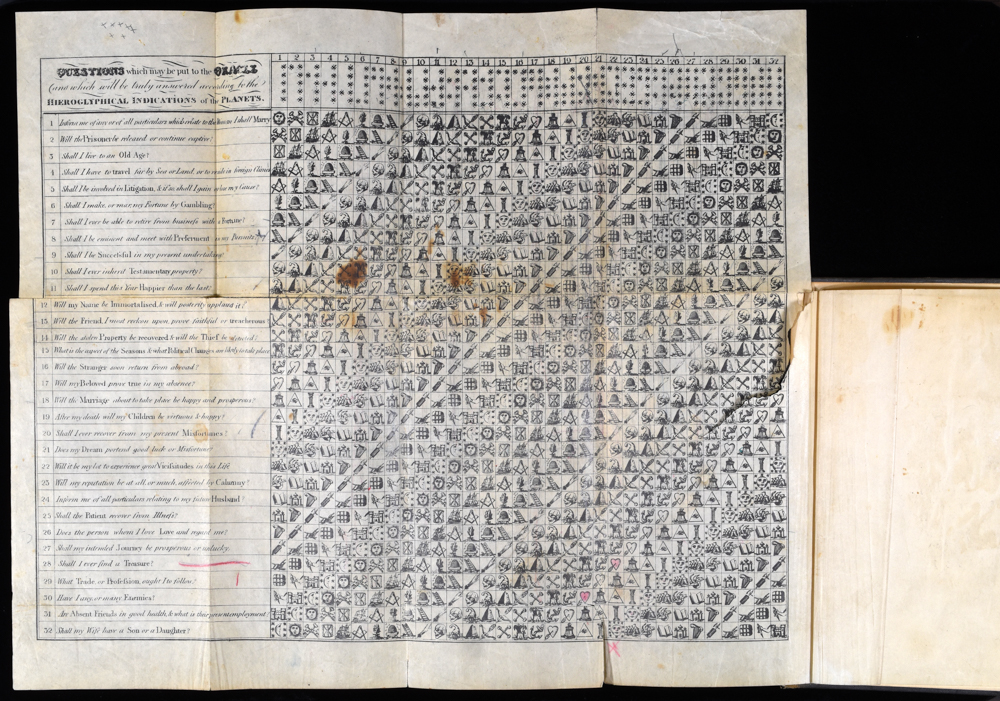 1 2 3 4 5 6 7 8 9 10 11 12 13 14 15 16 17 18 19 20 21 22 23 24 25 26 27 28 29 30 31 32
QUESTIONS which may be put to the ORACLE
(and which will be truly answered according to the
HIEROGLYPHICAL INDICATIONS of the PLANETS.
1 Inform me of any or of all particulars which relate to the Woman I shall Marry
2 Will the Prisoner be released or continue captive?
3 Shall I live to an Old Age?
4 Shall I have to travel far by Sea or Land, or to reside in foreign Climes
5 Shall I be involved in Litigation, & if so, shall I gain or lose my Cause?
6 Shall I make, or mar, my Fortune by Gambling?
7 Shall I ever be able to retire from business with a Fortune?
8 Shall I be eminent and meet with Preferment in my Pursuits?
9 Shall I be Successful in my present undertaking?
10 Shall I ever inherit Testamentary property?
11 Shall I spend this Year Happier than the last?
12 Will my Name be Immortalised & will posterity applaud it?
13 Will the Friend, I most reckon upon, prove faithful or treacherous
14 Will the stolen Property be recovered & will the Thief be detected?
15 What is the aspect of the Seasons & what Political Changes are likely to take place
16 Will the Stranger soon return from abroad?
17 Will my Beloved prove true in my absence?
18 Will the Marriage about to take place be happy and prosperous?
19 After my death will my Children be virtuous & happy?
20 Shall I ever recover from my present Misfortunes?
21 Does my Dream portend good luck or Misfortune?
22 Will it be my lot to experience great Vicissitudes in this Life
23 Will my reputation be at all, or much, affected by Calumny?
24 Inform me of all particulars relating to my future Husband?
25 Shall the Patient recover from Illness?
26 Does the person whom I love Love and regard me?
27 Shall my intended Journey be prosperous or unlucky.
28 Shall I ever find a Treasure?
29 What Trade, or Profession, ought I to follow?
30 Have I any, or many Enemies?
31 Are Absent Friends in good health, & what is their present employment
32 Shall my Wife have a Son or a Daughter?